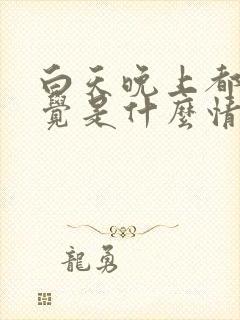 白天晚上都
覺是什麼情
龍勇